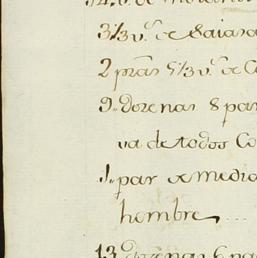 3 1/3 v.s de Saiasa
2 pzas 5 1/3 v.s de C
9. Dozenas 8 par
va de todos Co
1. par de media
hombre
13 Dozenas 6 pa